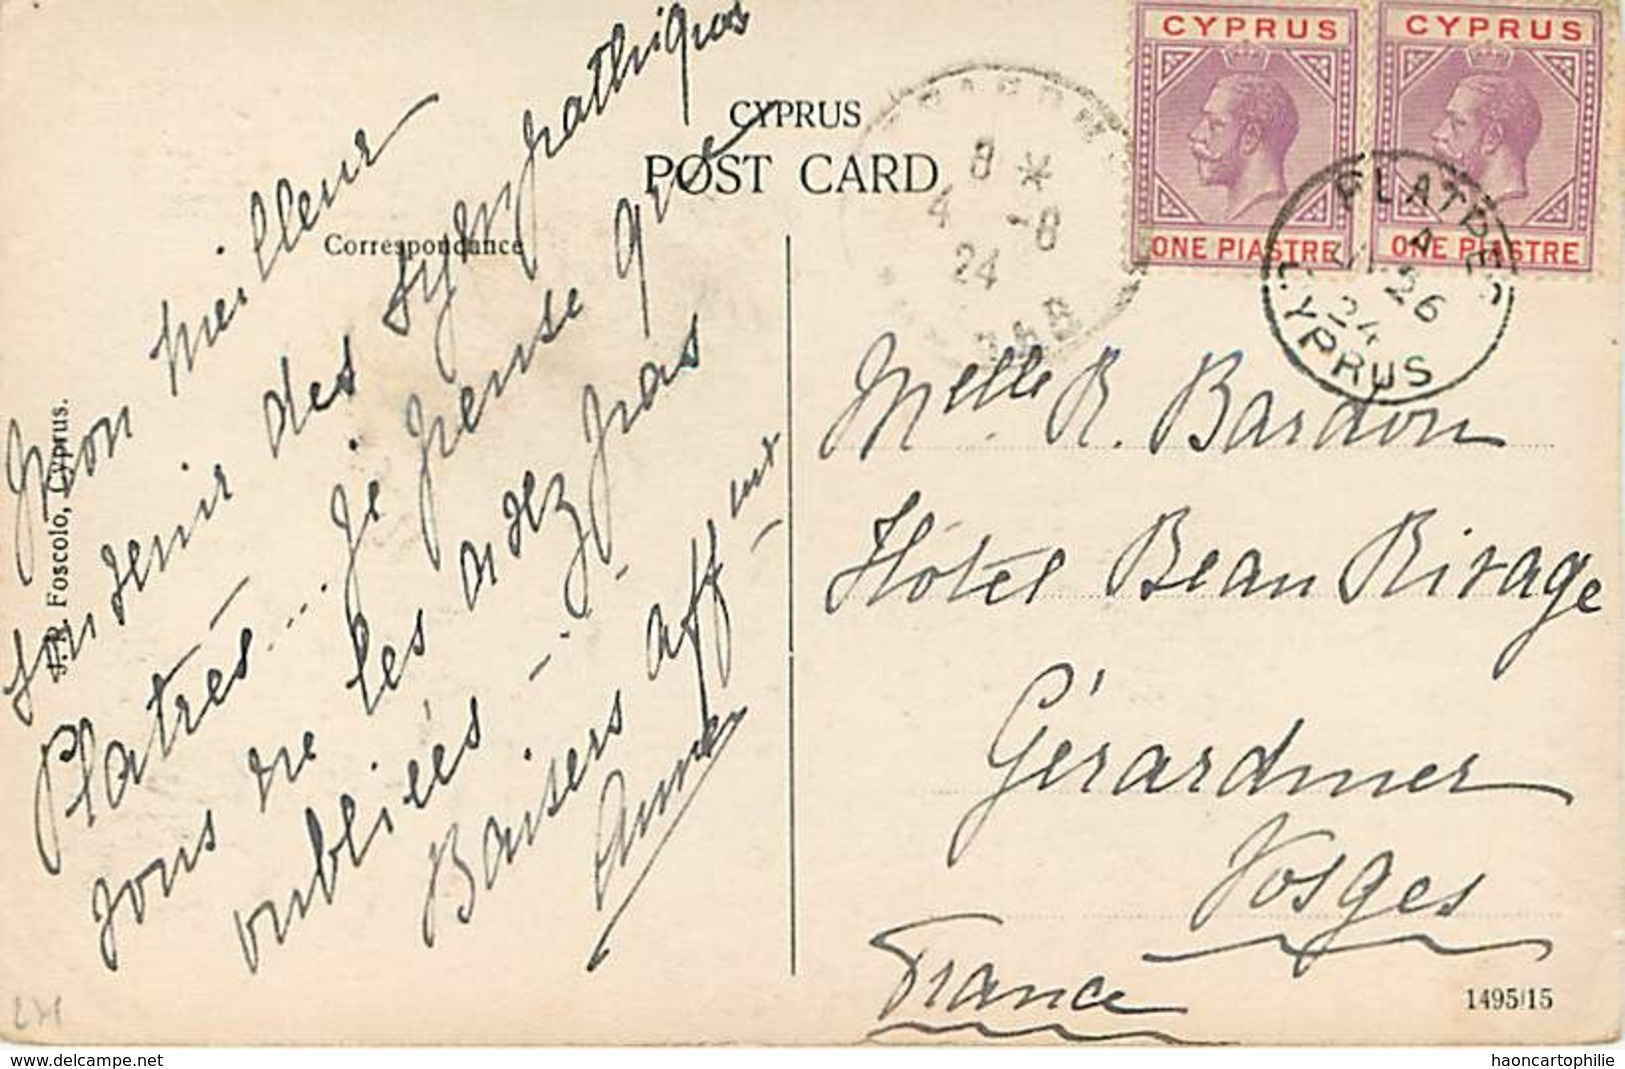 CYPRUS
POST CARD
Correspondance
J.P. Foscolo, Cyprus.
Mon meilleur
souvenir des sympathiques
Platrès... Je pense que
vous ne les avez pas
oubliées -
Baisers affueux
Anna
CYPRUS
ONE PIASTRE
CYPRUS
ONE PIASTRE
8 *
4 -8
24
PLATRES
A
26
24
CYPRUS
Melle R. Bardon
Hôtel Beau Rivage
Gérardmer
Vosges
France
1495/15
www.delcampe.net
haoncartophilie